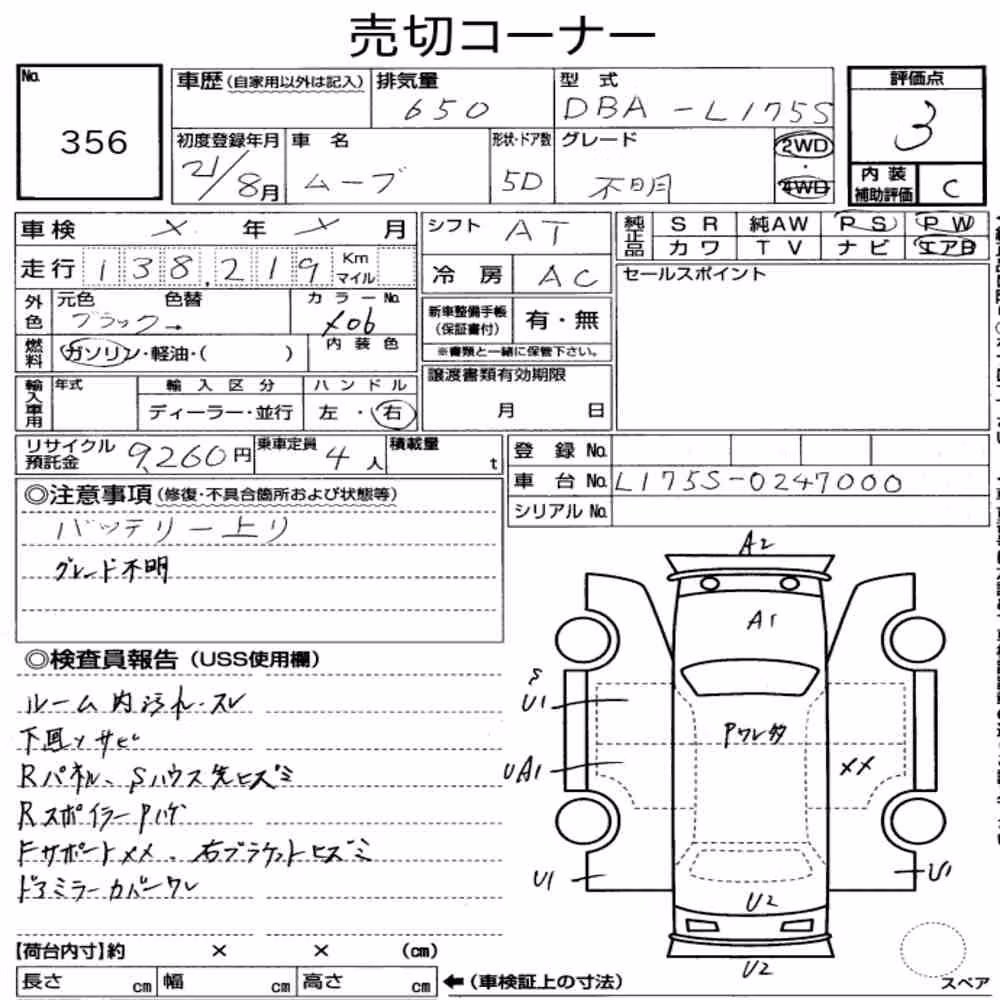 売切コーナー
No. 356
車歴 (自家用以外は記入) 排気量 650
型式 DBA-L175S
評価点 3
初度登録年月 21/8月
車名 ムーブ
形状・ドア数 5D
グレード 不明
2WD・4WD
内装補助評価 C
車検 × 年 × 月
走行 138,219 Km マイル
外色 元色 ブラック→ 色替
カラーNo. X06
燃料 ガソリン・軽油・( )
内装色
輸入車用 年式
輸入区分 ディーラー・並行
ハンドル 左・右
シフト AT
冷房 AC
新車整備手帳 (保証書付) 有・無
※書類と一緒に保管下さい。
譲渡書類有効期限
月 日
純正品 SR 純AW PS PW
カワ TV ナビ エアB
セールスポイント
リサイクル預託金 9,260円
乗車定員 4人
積載量 t
登録No.
車台No. L175S-0247000
シリアルNo.
◎注意事項 (修復・不具合箇所および状態等)
バッテリー上り
グレード不明
◎検査員報告 (USS使用欄)
ルーム内汚れ・スレ
下回りサビ
Rパネル、Sハウス先ヒズミ
Rスポイラー Pハゲ
Fサポートメメ、右ブラケットヒズミ
ドアミラーカバーワレ
A2
A1
S
U1
Pワレ多
UA1
XX
U1
U1
U2
U2
スペア
【荷台内寸】約 × × (cm)
長さ cm 幅 cm 高さ cm
←(車検証上の寸法)